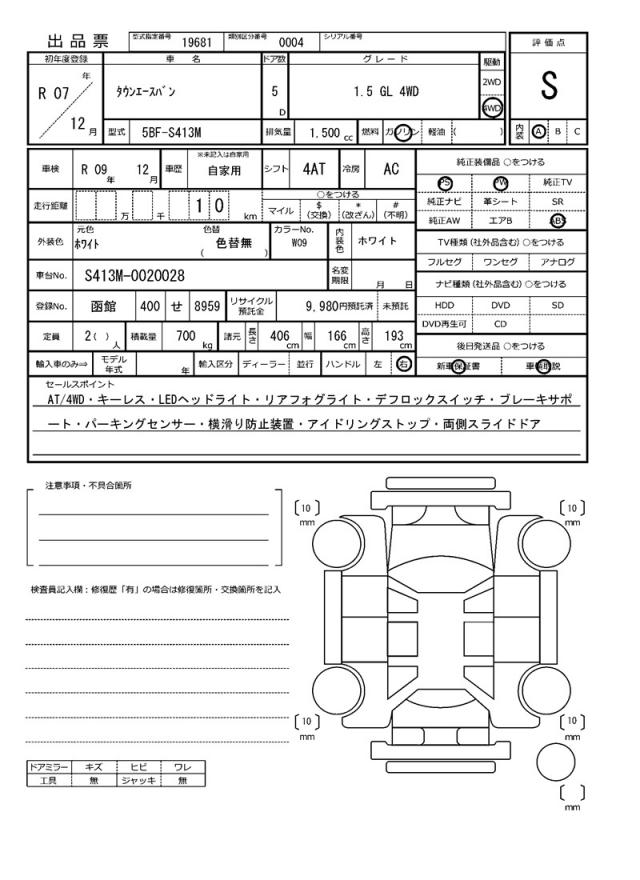 出品票 型式指定番号 19681 類別区分番号 0004 シリアル番号
評価点
S
内装 A B C
初年度登録 車名 ドア数 グレード 駆動
R 07 年 12 月 タウンエースバン 5 D 1.5 GL 4WD 2WD 4WD
型式 5BF-S413M 排気量 1.500 cc 燃料 ガソリン 軽油 ( )
車検 R 09 年 12 月 車歴 ※未記入は自家用 自家用 シフト 4AT 冷房 AC
走行距離 万 千 1 0 km ○をつける マイル $ (交換) * (改ざん) # (不明)
外装色 元色 ホワイト 色替 色替無 ( ) カラーNo. W09 内装色 ホワイト
車台No. S413M-0020028 名変期限 月 日
登録No. 函館 400 せ 8959 リサイクル預託金 9,980円預託済 未預託
定員 2( )人 積載量 700 kg 諸元 長さ 406 cm 幅 166 cm 高さ 193 cm
輸入車のみ⇒ モデル年式 年 輸入区分 ディーラー 並行 ハンドル 左 右
純正装備品 ○をつける
PS PW 純正TV
純正ナビ 革シート SR
純正AW エアB ABS
TV種類 (社外品含む) ○をつける
フルセグ ワンセグ アナログ
ナビ種類 (社外品含む) ○をつける
HDD DVD SD
DVD再生可 CD
後日発送品 ○をつける
新車保証書 車輌取説
セールスポイント
AT/4WD・キーレス・LEDヘッドライト・リアフォグライト・デフロックスイッチ・ブレーキサポ
ート・パーキングセンサー・横滑り防止装置・アイドリングストップ・両側スライドドア
注意事項・不具合箇所
検査員記入欄：修復歴「有」の場合は修復箇所・交換箇所を記入
[10] mm [10] mm
[10] mm [10] mm
[ ] mm
ドアミラー キズ ヒビ ワレ
工具 無 ジャッキ 無